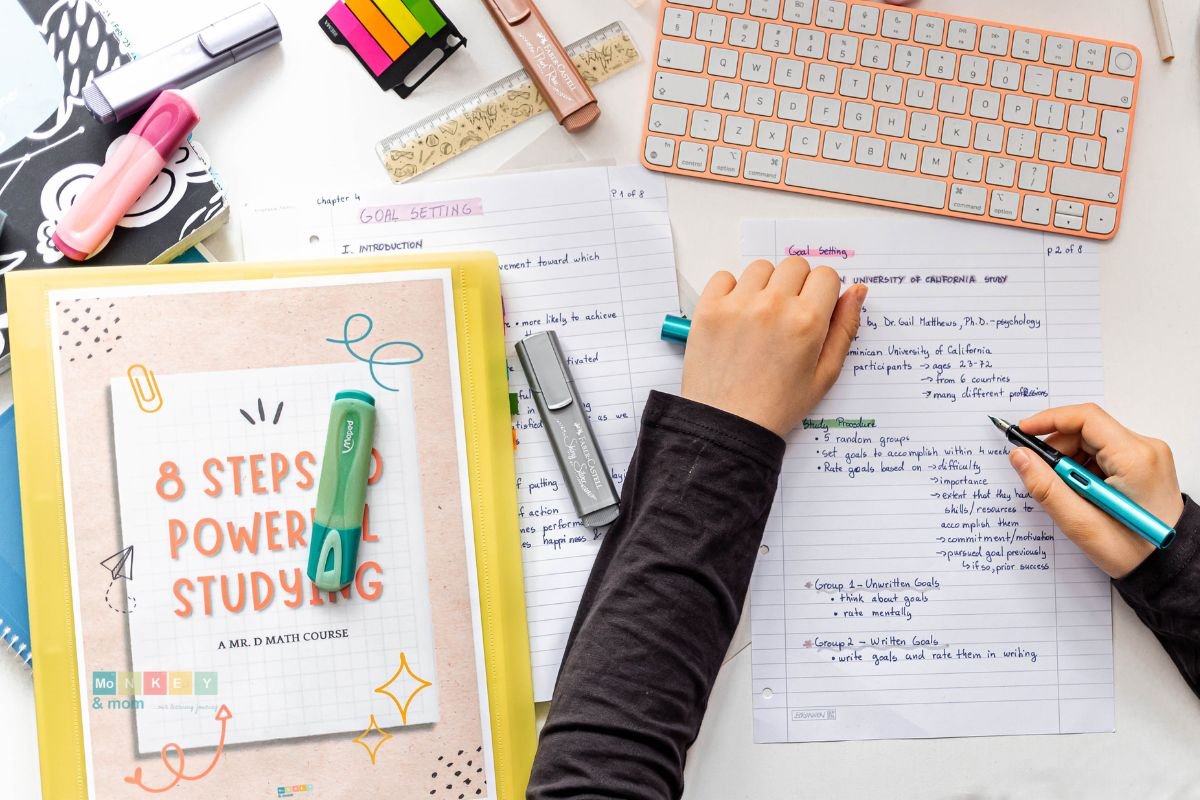 Chapter 4
P 1 of 8
GOAL SETTING
I. INTRODUCTION
vement toward which
• more likely to achieve
tivated
as we
of putting
of action
nes perform
es happiness
Goal Setting
p 2 of 8
UNIVERSITY OF CALIFORNIA STUDY
by Dr. Gail Matthews, Ph.D. - psychology
minican University of California
participants → ages 23-72
→ from 6 countries
→ many different professions
Study Procedure
• 5 random groups
• set goals to accomplish within 4 weeks
• Rate goals based on → difficulty
→ importance
→ extent that they had
skills/resources to
accomplish them
→ commitment/motivation
→ pursued goal previously
↳ if so, prior success
* Group 1 - Unwritten Goals
• think about goals
• rate mentally
* Group 2 - Written Goals
• write goals and rate them in writing
8 STEPS
POWER L
STUDYING
A MR. D MATH COURSE
MoNKEY
& mom
our learning journey
Maped
Maped
FABER-CASTELL
FABER-CASTELL
Q W E R T Y U I O P
A S D F G H J K L
Z X C V B N M
control option command
command option